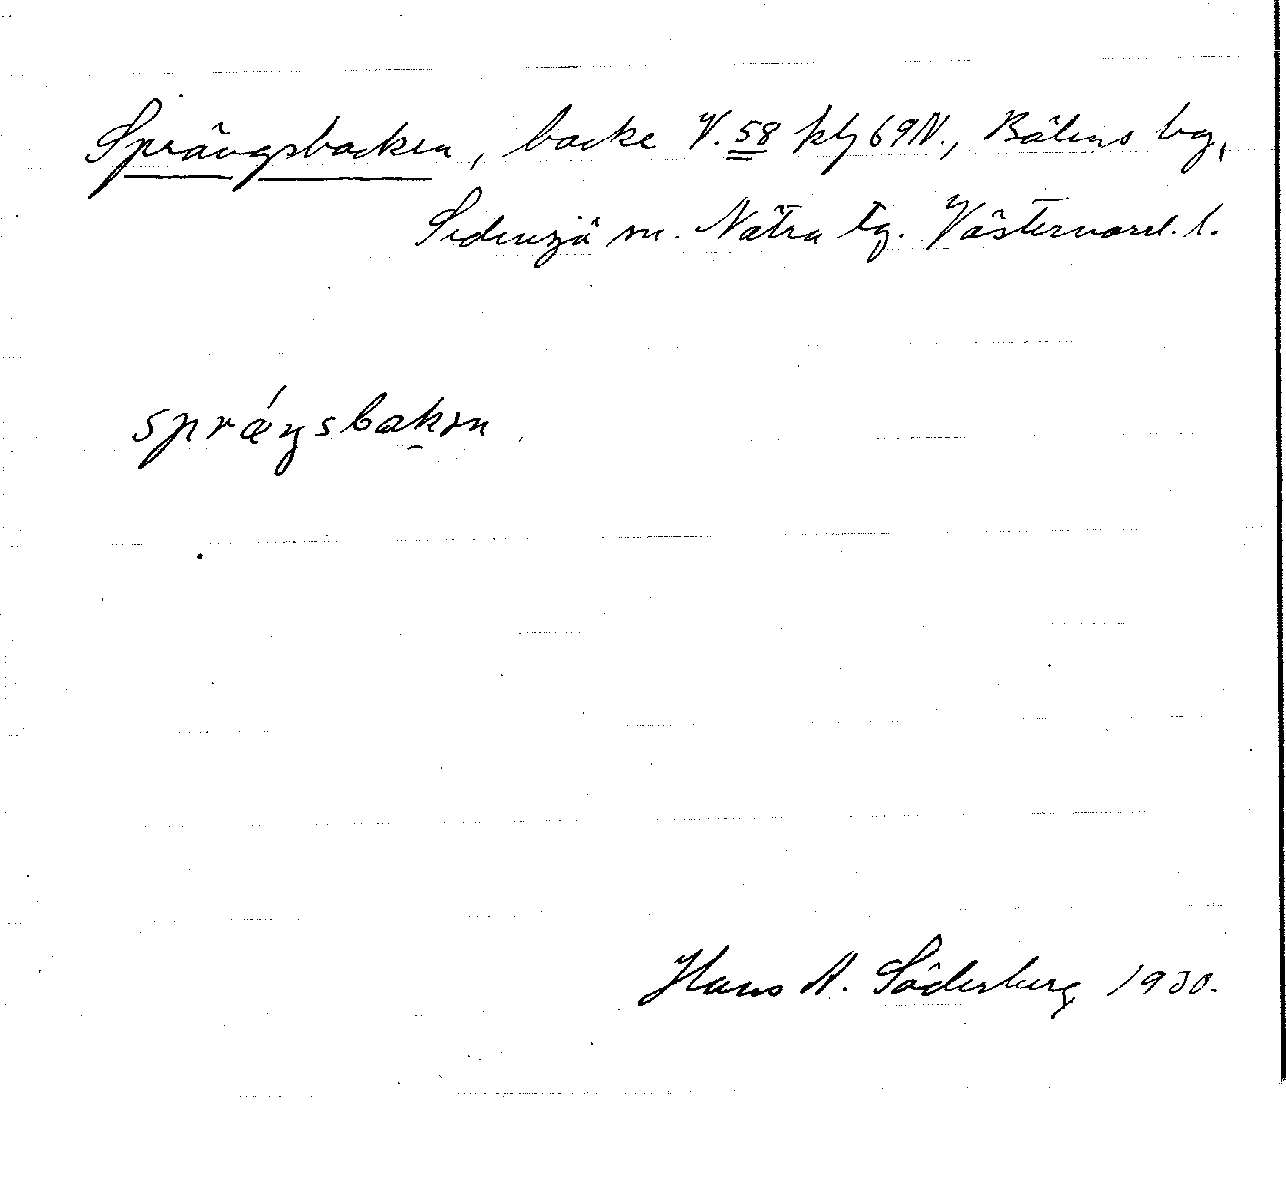 Sprängsbacken, backe V. 58 klj 69N., Bäling bg,
Sidensjö sn. Nätra tg. Västernorrl. l.
sprǽŋsbakən
Hans A. Söderberg 1930.